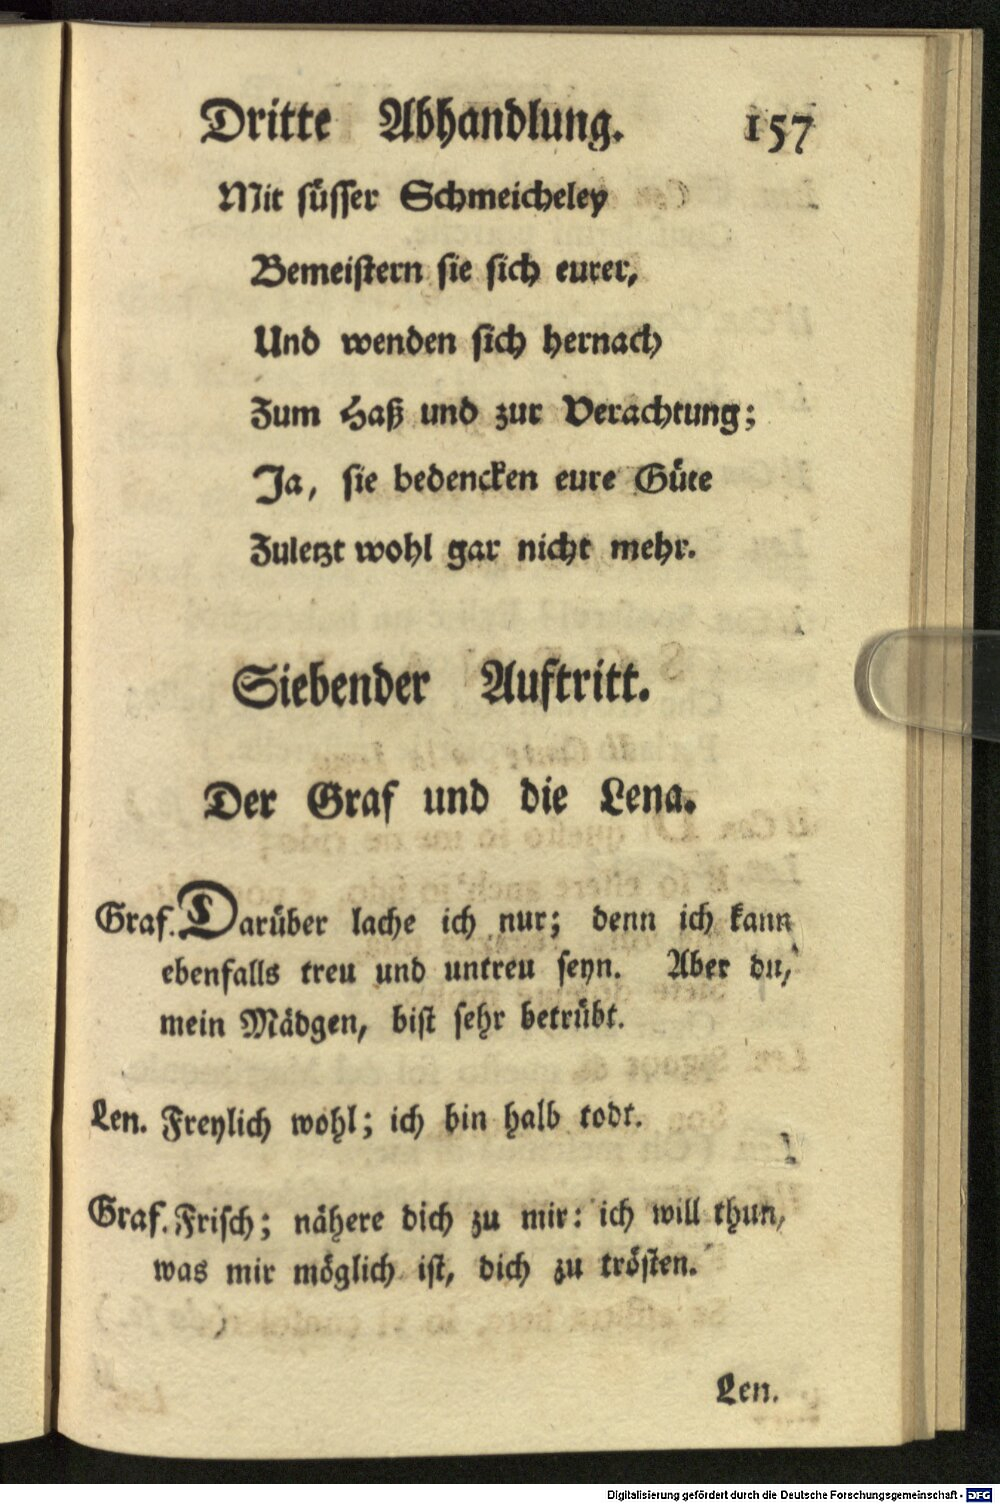 Dritte Abhandlung. 157
Mit süsser Schmeicheley
Bemeistern sie sich eurer,
Und wenden sich hernach
Zum Haß und zur Verachtung;
Ja, sie bedencken eure Güte
Zuletzt wohl gar nicht mehr.
Siebender Auftritt.
Der Graf und die Lena.
Graf. Darüber lache ich nur; denn ich kann
ebenfalls treu und untreu seyn. Aber du,
mein Mädgen, bist sehr betrübt.
Len. Freylich wohl; ich bin halb todt.
Graf. Frisch; nähere dich zu mir: ich will thun,
was mir möglich ist, dich zu trösten.
Len.
Digitalisierung gefördert durch die Deutsche Forschungsgemeinschaft - DFG